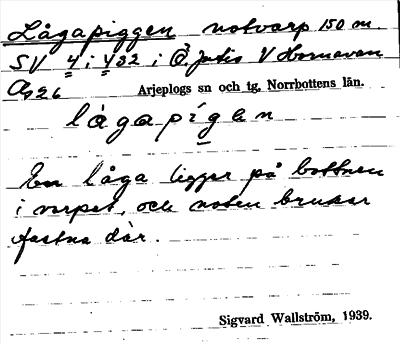 Lågapiggen notvarp 150 m.
SV 4 i 432 i Ö. Jutis V Hornavan
Arjeplogs sn och tg, Norrbottens län.
lågapígen
En låga ligger på bottnen
i varpet, och noten brukar
fastna där.
Sigvard Wallström, 1939.